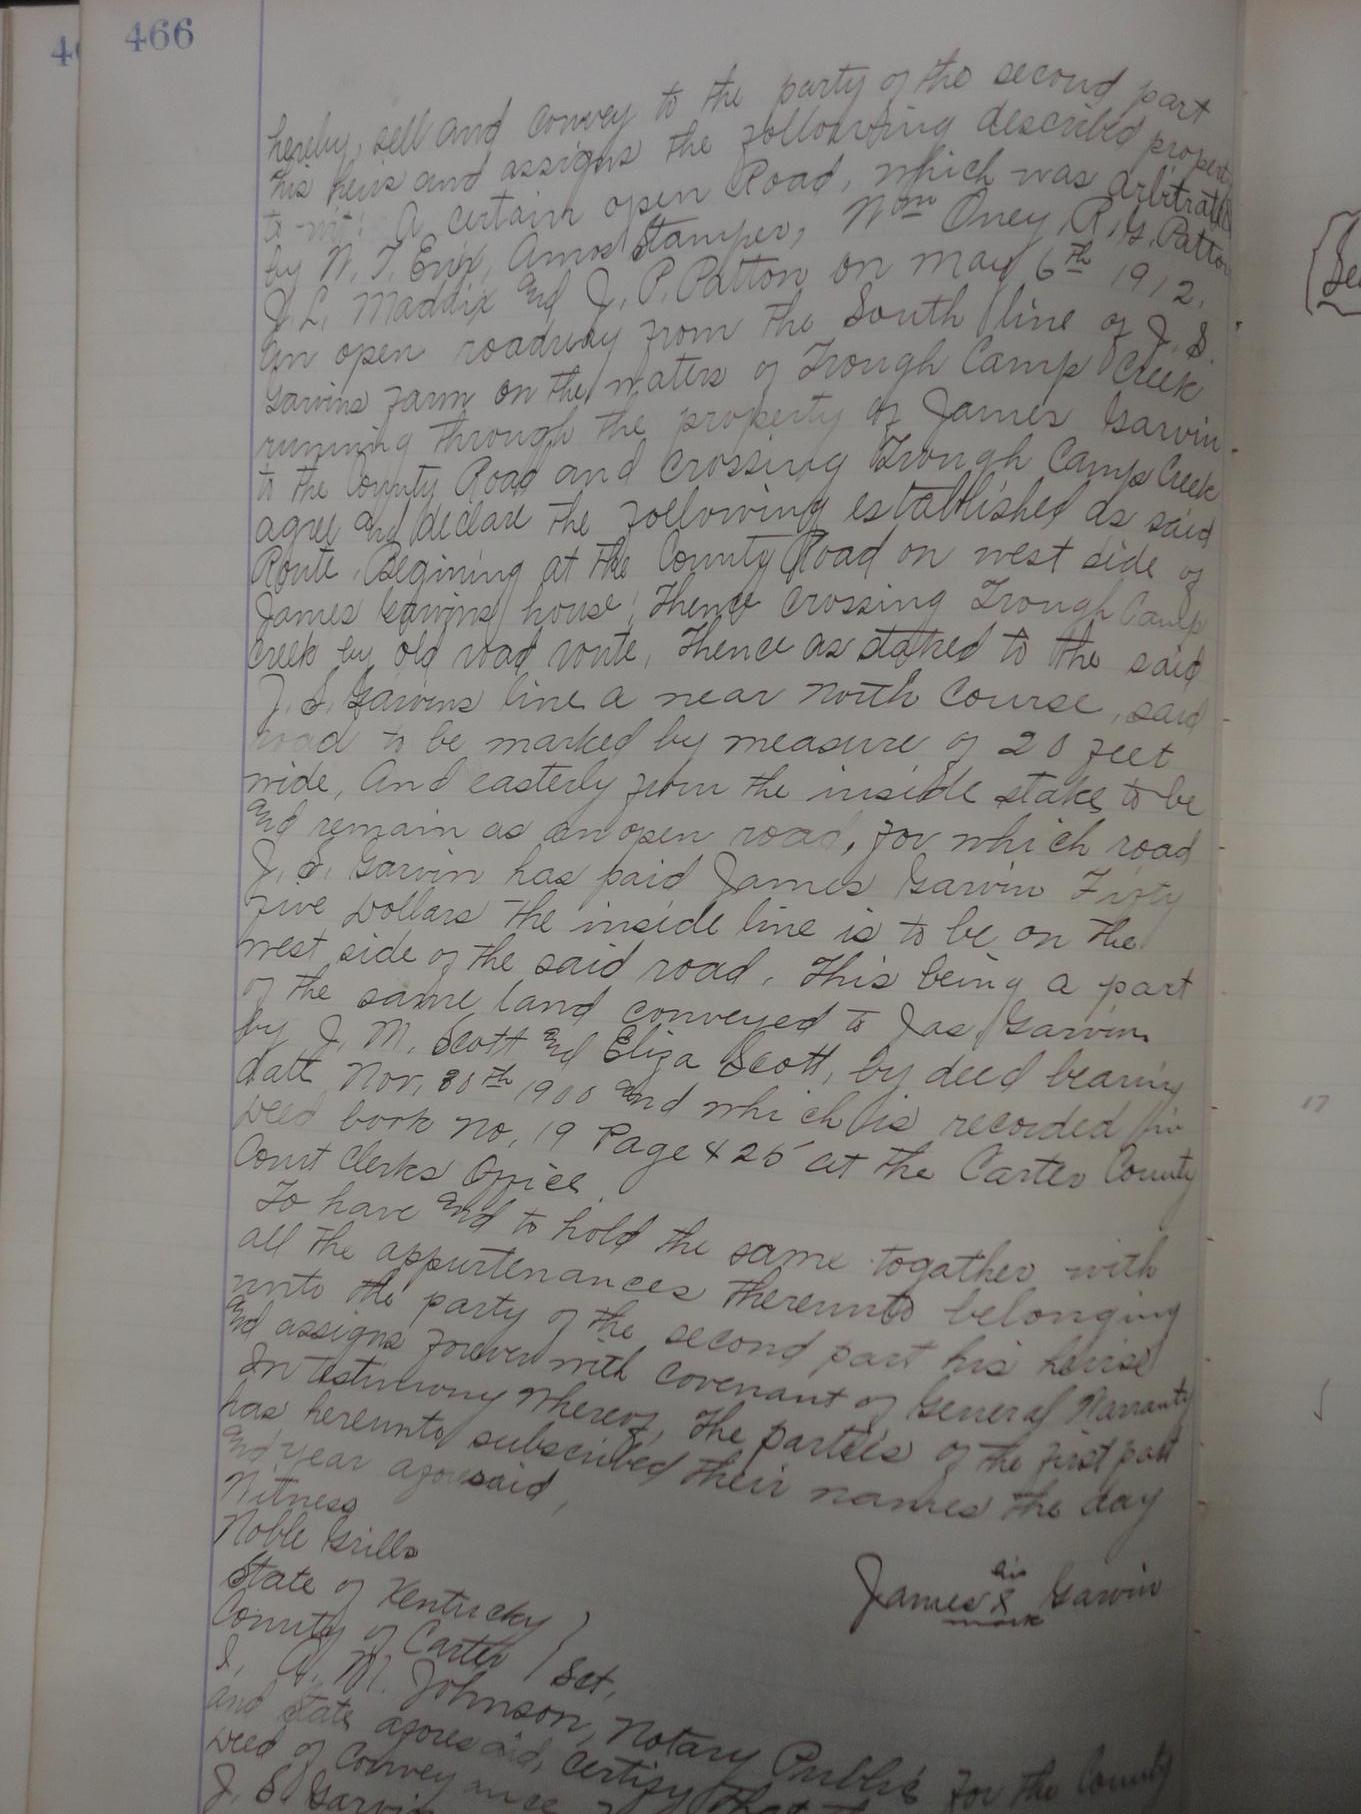 466
hereby, sell and convey to the party of the second part
his heirs and assigns the following described property
to-wit: A certain open Road, which was arbitrated
by N. T. Enix, Amos Stamper, Wm Oney, R. G. Patton
J. L. Maddix and J. P. Patton on may 6th 1912.
An open roadway from the South line of J. S.
Garvins farm on the waters of Trough Camp Creek
running through the property of James Garvin
to the County Road and crossing Trough Camp Creek
agree and declare the following established as said
Route. Begining at the County Road on west side of
James Garvins house; Thence crossing Trough Camp
Creek by old road route, Thence as staked to the said
J. S. Garvins line a near North Course, said
road to be marked by measure of 20 feet
wide, And easterly from the inside stake to be
and remain as an open road, for which road
J. S. Garvin has paid James Garvin Fifty
five Dollars the inside line is to be on the
west side of the said road. This being a part
of the same land conveyed to Jas Garvin
by J. M. Scott and Eliza Scott, by deed bearing
date Nov, 30th 1900 and which is recorded in
Deed book No. 19 Page 425 at the Carter County
Court Clerks Office.
To have and to hold the same togather with
all the appurtenances thereunto belonging
unto the party of the second part his heirse
and assigns forever with covenant of General Warranty
In Testimony Whereof, The parties of the first part
has hereunto subscribed their names the day
and year aforesaid,
Witness
Noble Grills
James his X mark Garvin
State of Kentucky )
County of Carter ) Sct,
I, A. M. Johnson, Notary Public for the County
and State aforesaid, certify that
Deed of Conveyance
J. S. Garvin